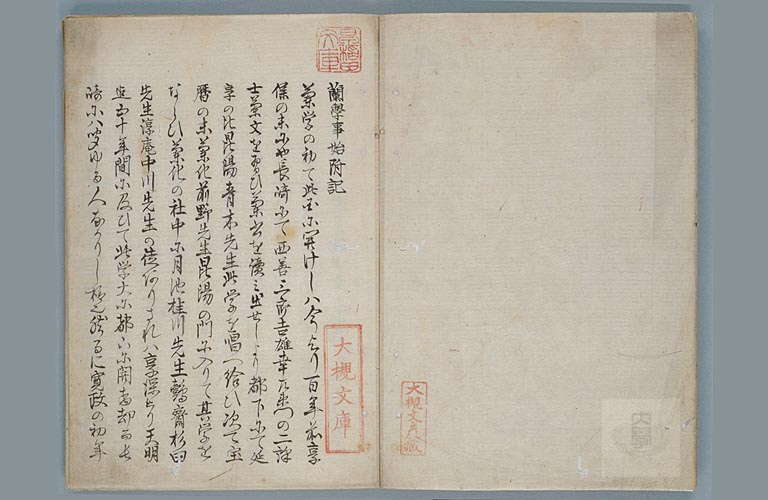 蘭學事始附記
蘭学の初て此國に開けしハ今より一百年前享
保の末にや長崎にて西善三郎吉雄幸左衛門の二訳
士蘭文を習ひ蘭書を讀ミ出せしより都下にて延
享の比昆陽青木先生此学を唱へ給ひ次て宝
暦の末蘭化前野先生昆陽の門に入りて其学を
ならひ蘭化の社中に月池桂川先生鷧齋杉田
先生淳庵中川先生の徒ありされハ享保より天明
迄五十年間に及ひて此学大に都下に開
崎にハ る人 なかりし 寛政の初年
大槻文庫
大槻文彦蔵
文庫